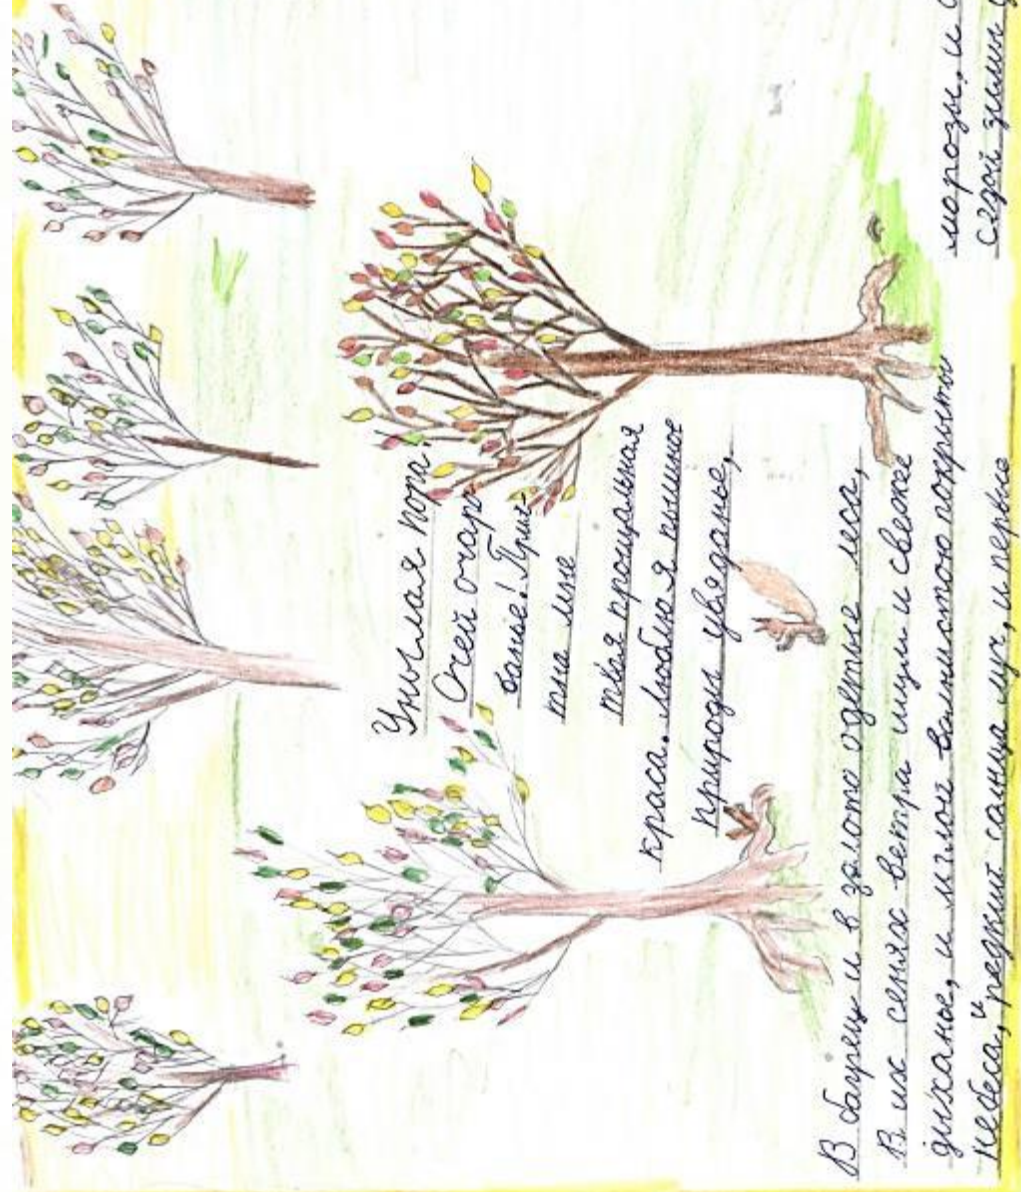 Унылая пора!
Очей очаро-
ванье! Прия-
тна мне
твоя прощальная
краса. Люблю я пышное
природы увяданье,
В багрец и в золото одетые леса,
В их сенях ветра шум и свежее
дыханье, и мглой волнистою покрыты
небеса, и редкий солнца луч, и первые
морозы, и
седой зимы